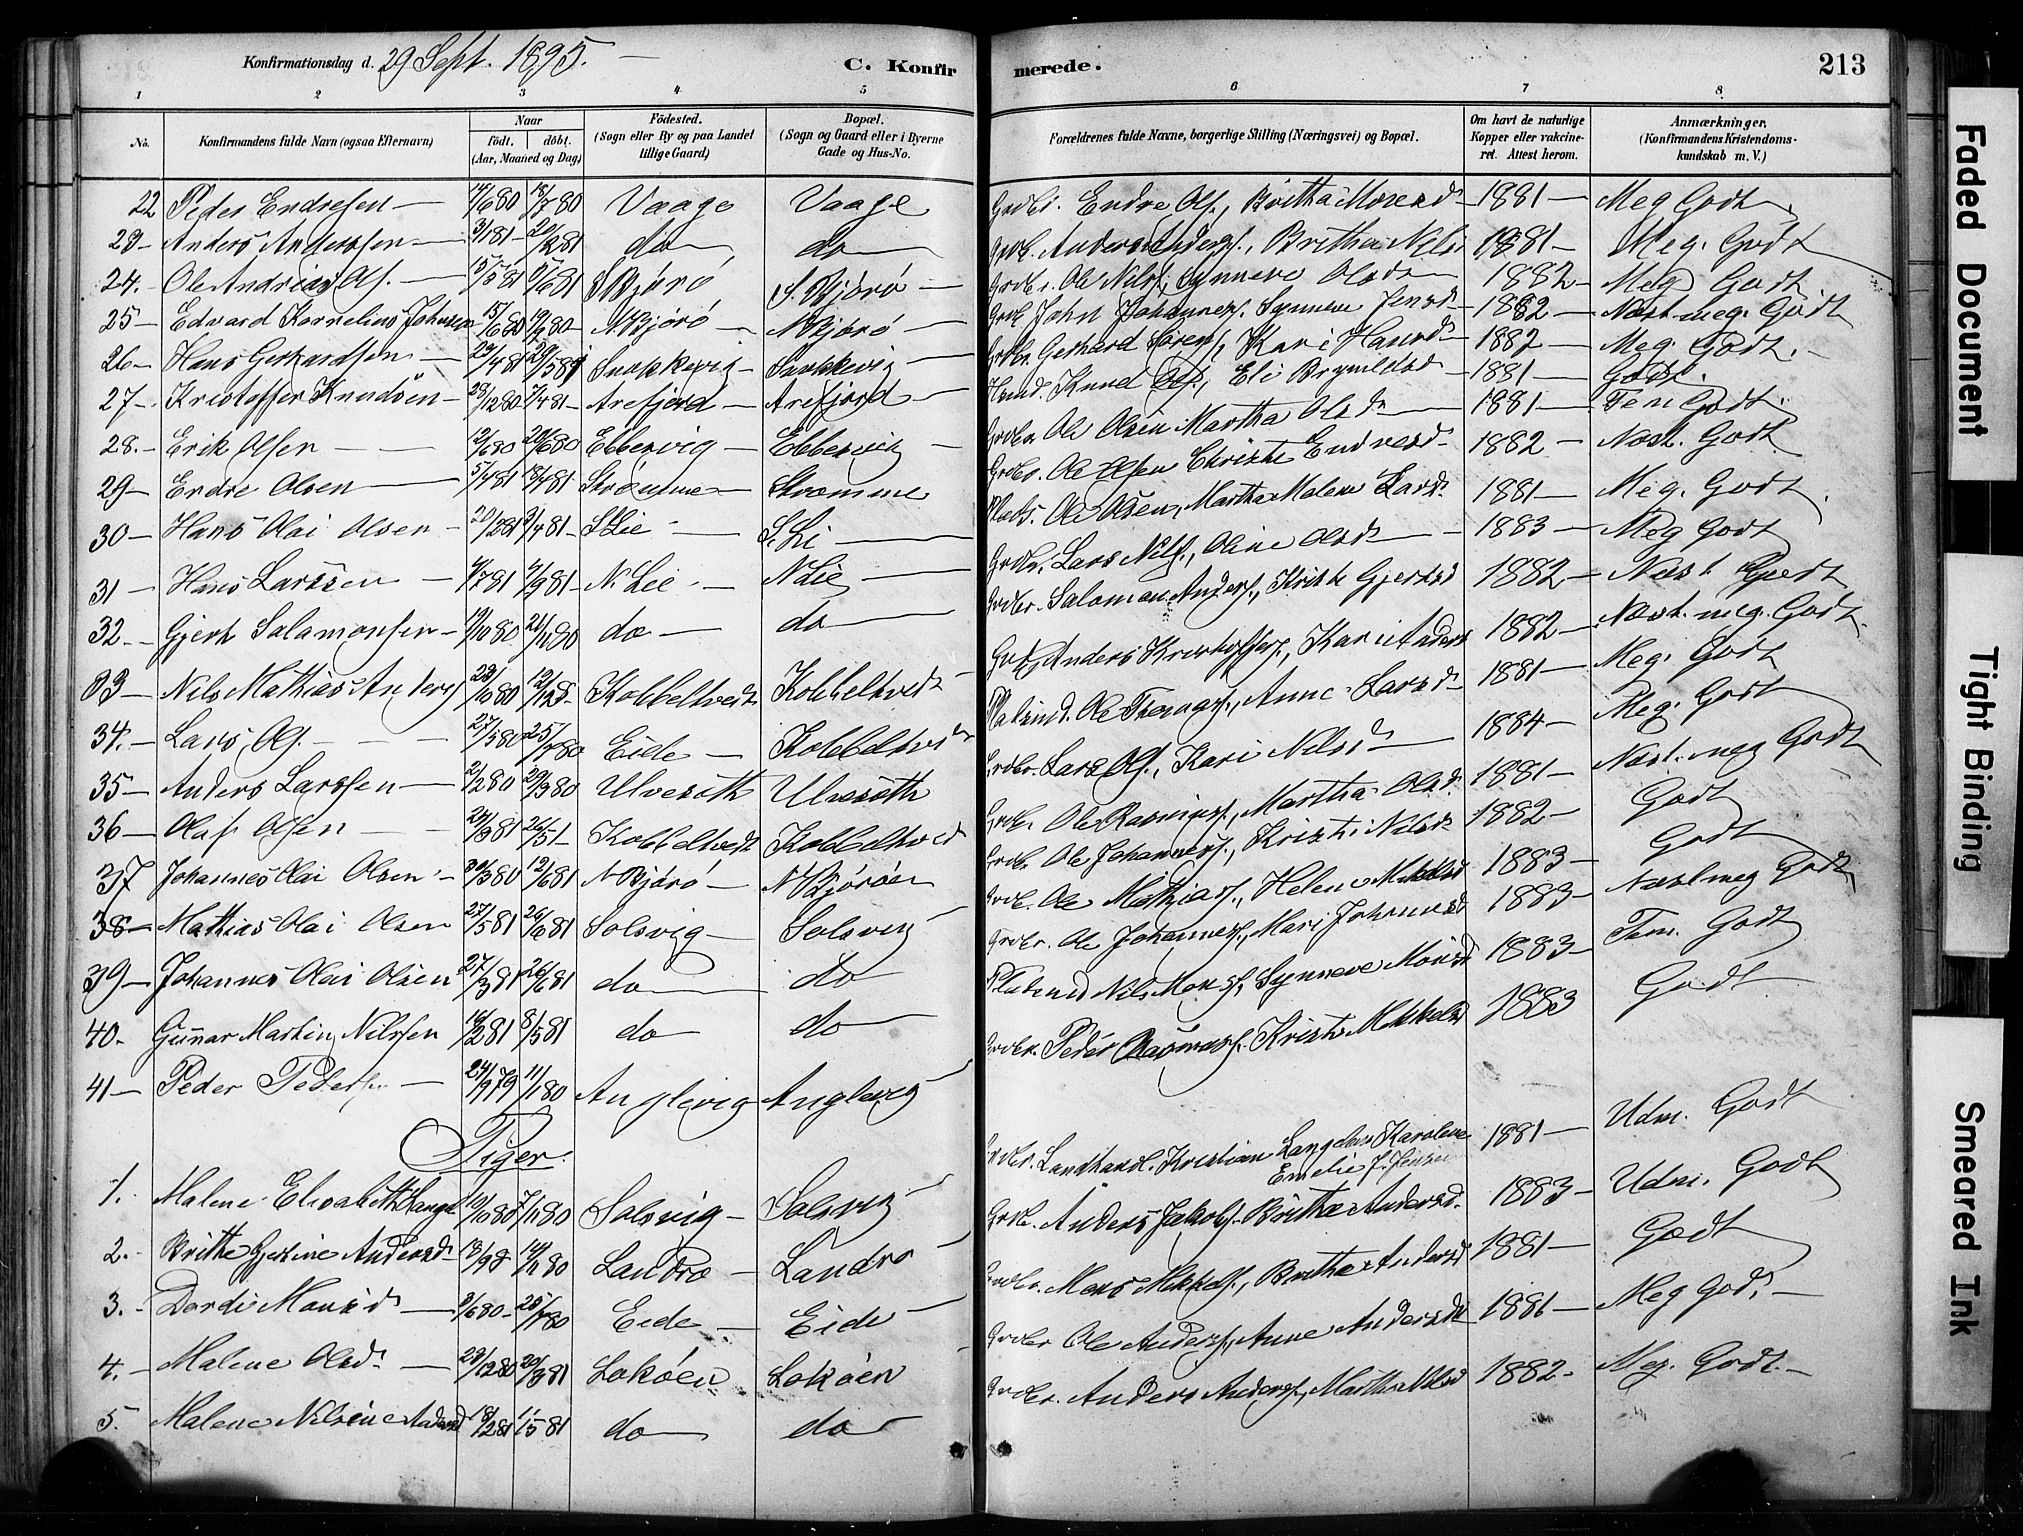 Konfirmationsdag d. 29 Sept. 1895. —
C. Konfirmerede.
213
1 2 3 4 5 6 7 8
No.
Konfirmandens fulde Navn (ogsaa Efternavn)
Naar
født. døbt.
(Aar, Maaned og Dag)
Fødested.
(Sogn eller By og paa Landet
tillige Gaard)
Bopæl.
(Sogn og Gaard eller i Byerne
Gade og Hus-No.
Forældrenes fulde Navne, borgerlige Stilling (Næringsvei) og Bopæl.
Om havt de naturlige
Kopper eller vakcine-
ret. Attest herom.
Anmærkninger.
(Konfirmandens Kristendoms-
kundskab m. V.)
22 Peder Endresen — 14/6 80 18/7 80 Vaage Vaage Grdbr. Endre Ols., Britha Monsd. 1881 — Meg Godt
23 — Anders Anderssen — 3/1 81 — 20/2 81 do do Grdb. Anders Anders., Britha Nilsd 1881 — Meg. Godt
24. Ole Andrias Ols. — 15/5 81 5/6 81 S Bjórö S. Bjórö — Grdbr. Ole Nils., Synneve Olsd 1882 — Meg Godt
25 — Edvard Kornelius Johnsen 15/6 80 19/9 80 — N. Bjórö — N Bjórö — Grdb John Johannes., Synneve Jensd — 1882 — Næst meg. Godt
26 — Hans Gerhardsen — 23/4 81 29/5 81 Snekkevig — Snekkevig — Grdbr Gerhard Sörens., Kari Hansd — 1882 — Meg. Godt. —
27 — Kristoffer Knudsen — 28/12 80 7/4 81 — Arefjord — Arefjord — Knud Ols., Eli Brynildsd — 1881 — Godt.
28. — Erik Olsen — — 12/6 80 20/6 80 Ebbesvig — Ebbesvig — Grdbr Ole Olsen Martha Olsd 1881 — Tem. Godt.
29 — Endre Olsen 5/4 81 18/4 81 Strömme — Strömme Grdbr. Ole Olsen Christi Endresd — 1882 — Næst. Godt
30 — Hans Olai Olsen — 21/2 81 3/4 81 — S Lie — S. Li — Plads. Ole Olsen, Martha Malene Larsd. 1881 — Meg. Godt.
31 — Hans Larssen — 4/7 81 4/9 81 — N. Lie — N Lie — Grdbr. Lars Nils., Oline Olsd — 1883 — Meg Godt
32 — Gjert Salamonsen — 19/10 80 21/11 80 do — do — Grdbr. Salomon Anders., Kristi Gjertsd 1882 — Næst Godt
33 — Nils Mathias Anders 23/10 80 Kobbeltvedt Kobbeltvedt Anders Kristoffers., Kari Andersd 1882 — Næst. meg. Godt.
34. — Lars Ols. — — 27/5 80 25/7 80 Eide — Kobbeltvedt Pladsmd. Ole Thomas., Anne Larsd — 1881 — Meg. Godt
35 — Anders Larssen — 2/2 80 29/3 80 Ulvesöth Ulvesöth Grdbr. Lars Ols., Kari Nilsd 1884 — Meg. Godt
36 — Olaf Olsen — 24/3 81 26/5 1 — Kobbeltvedt Kobbeltvedt Grdbr Ole Rasmuss., Martha Olsd. 1881 — Næst. meg Godt
37 Johannes Olai Olsen — 30/3 80 12/6 81 N Bjórö — N Bjóröen Grdb. Ole Johanness., Kristi Nilsd. 1882 — Godt
38 — Mathias Olai Olsen 27/5 81 26/6 81 Solsvig — Solsvig Grdb. Ole Mathias., Helene Mikkelsd 1883 — Godt
39 — Johannes Olai Olsen 27/3 81 26/6 81 do do Grdbr. Ole Johannes., Mari Johannesd 1883 — Næst meg Godt
40. — Gunnar Martin Nilssen 14/2 81 8/5 81 do do Pladsmd Nils Mons., Synneve Monsd 1883 — Tem. Godt
41 — Peder Peders. — 24/9 79 11/1 80 Anglevig Anglevig Grdbr. Peder Rasmus. Kristi Mikkelsd 1883 Godt
Piger.
1. Malene Elisabeth Lange 10/10 80 7/11 80 Solsvig — Solsvig Grdbr. Landhandl. Kristian Karoline
Emelie J. Jensen 1881 — Udm. Godt
2. — Brithe Gjertine Andersd 18/9 8 14/11 80 Landrö — Landrö Grdb. Anders Jakobs., Britha Andersd. 1883 — Udm. Godt
3. — Dordi Monsd — 2/6 80 — 25/7 80 Eide — Eide Grdbr. Mons Mikkels., Britha Andersd 1881 — Godt
4. — Malene Olsd. — 23/12 80 20/3 81 Loköen Loköen Grdbr Ole Anders., Anne Andersd 1881 — Meg God. —
5. Malene Nilsine Andersd 18/2 81 1/5 81 do do Grdbr. Anders Anders., Martha Nilsd 1882 — Meg. Godt. —
Faded Document
Tight Binding
Smeared Ink